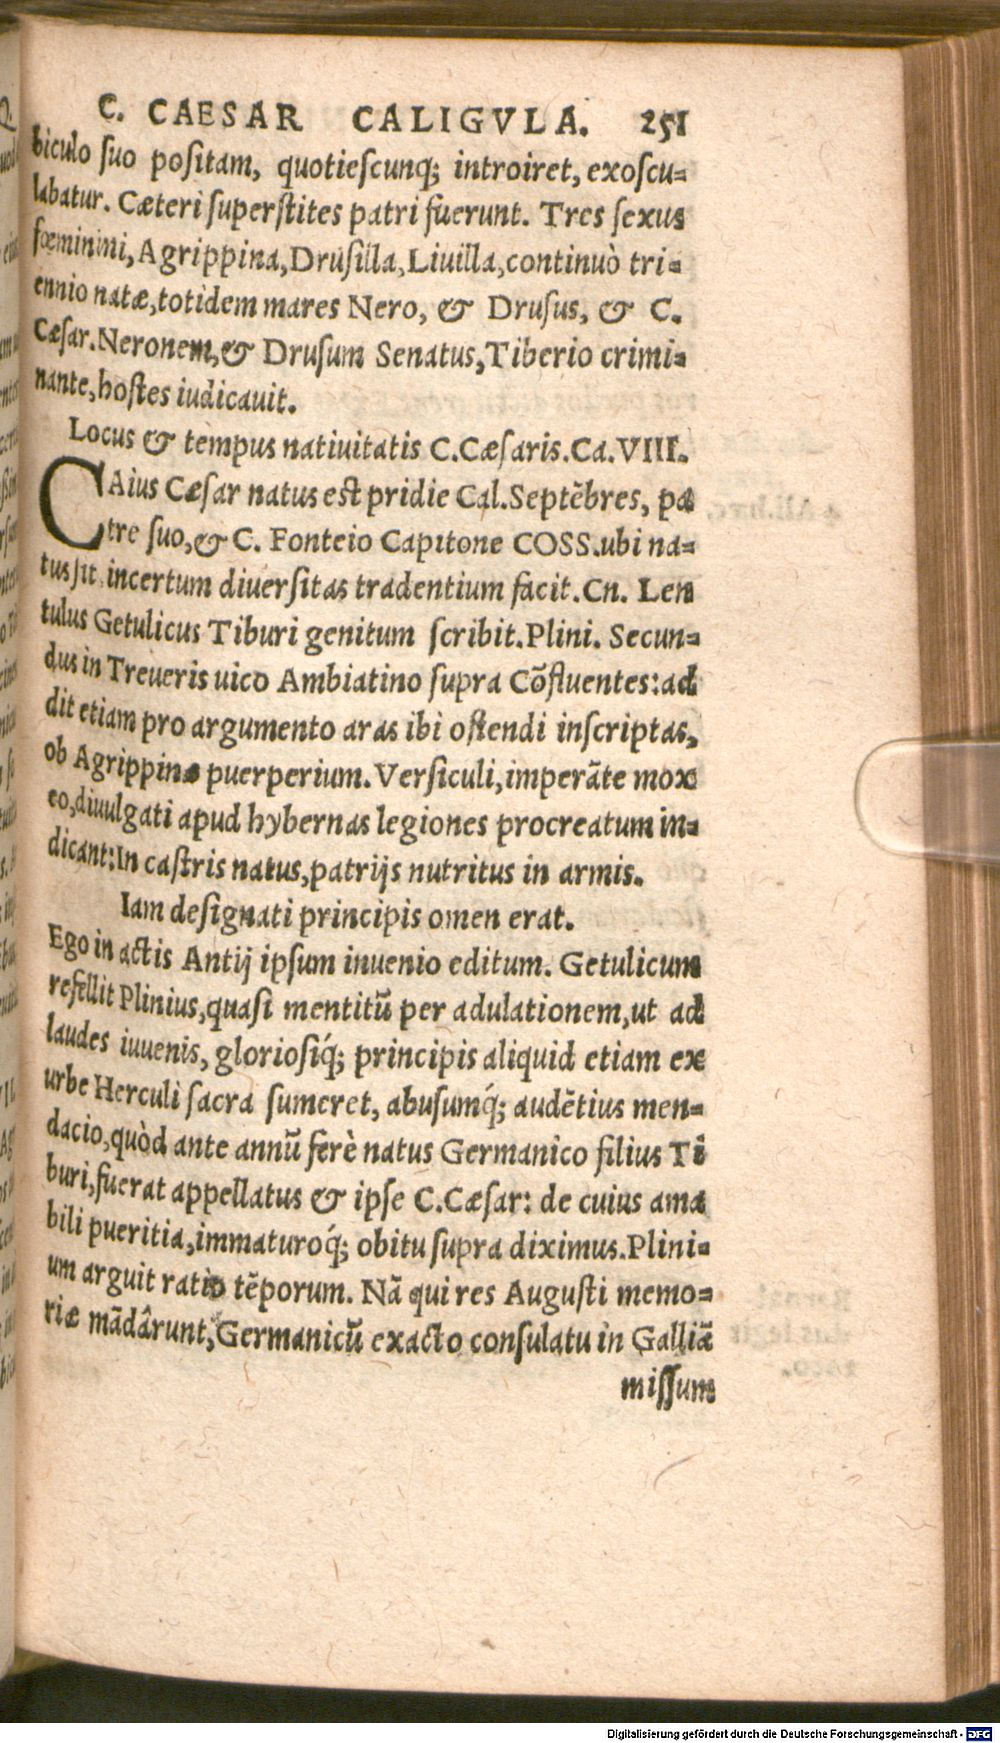 C. CAESAR CALIGVLA. 251
biculo suo positam, quotiescunq; introiret, exoscu=
labatur. Cæteri superstites patri fuerunt. Tres sexus
fœminini, Agrippina, Drusilla, Liuilla, continuò tri=
ennio natæ, totidem mares Nero, & Drusus, & C.
Cæsar. Neronem, & Drusum Senatus, Tiberio crimi=
nante, hostes iudicauit.
Locus & tempus natiuitatis C. Cæsaris. Ca. VIII.
CAius Cæsar natus est pridie Cal. Septẽbres, pa
tre suo, & C. Fonteio Capitone COSS. ubi na=
tus sit incertum diuersitas tradentium facit. Cn. Len
tulus Getulicus Tiburi genitum scribit. Plini. Secun=
dus in Treueris uico Ambiatino supra Cõfluentes: ad
dit etiam pro argumento aras ibi ostendi inscriptas,
ob Agrippinæ puerperium. Versiculi, imperãte mox
eo, diuulgati apud hybernas legiones procreatum in=
dicant: In castris natus, patrijs nutritus in armis.
Iam designati principis omen erat.
Ego in actis Antij ipsum inuenio editum. Getulicum
refellit Plinius, quasi mentitũ per adulationem, ut ad
laudes iuuenis, gloriosiq́; principis aliquid etiam ex
urbe Herculi sacra sumeret, abusumq́; audẽtius men=
dacio, quòd ante annũ ferè natus Germanico filius Ti
buri, fuerat appellatus & ipse C. Cæsar: de cuius ama
bili pueritia, immaturoq́; obitu supra diximus. Plini=
um arguit ratio tẽporum. Nã qui res Augusti memo=
riæ mãdârunt, Germanicũ exacto consulatu in Galliã
missum
Digitalisierung gefördert durch die Deutsche Forschungsgemeinschaft - DFG